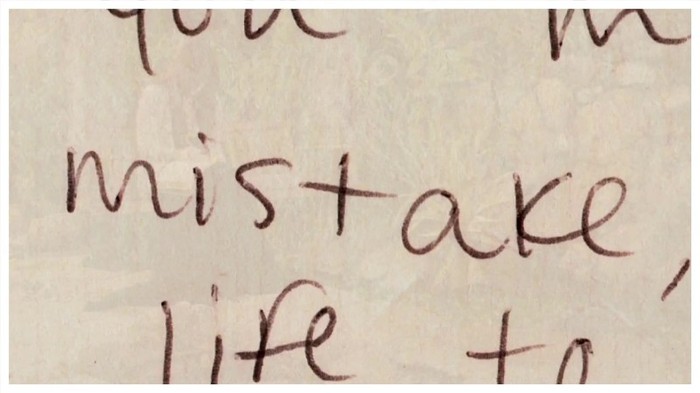 you
mistake,
life to